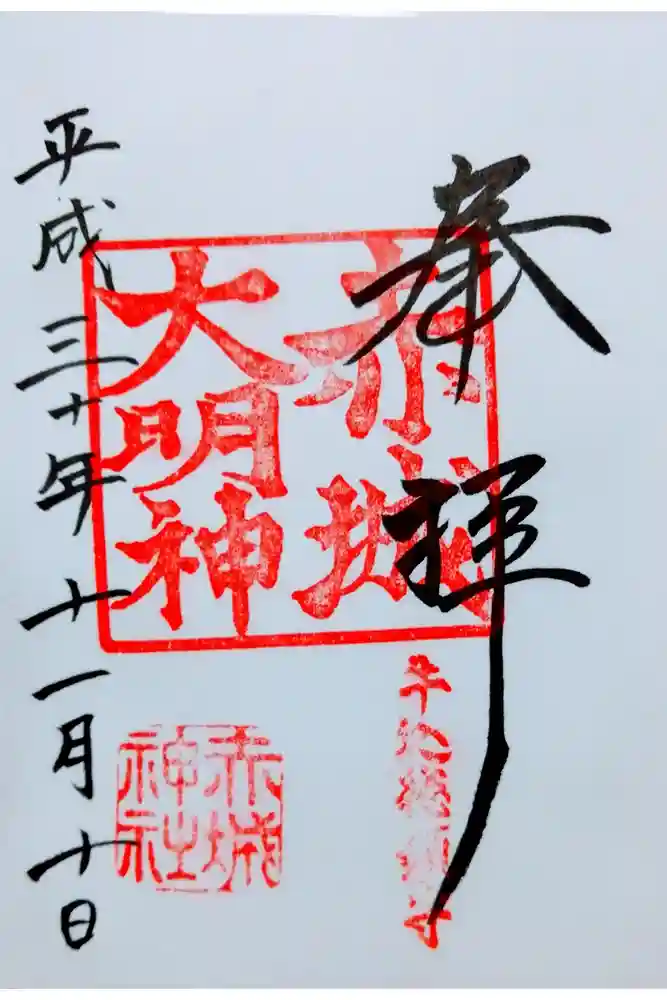 奉拝
牛込総鎮守
赤城
大明神
赤城
神社
平成三十年十一月十日